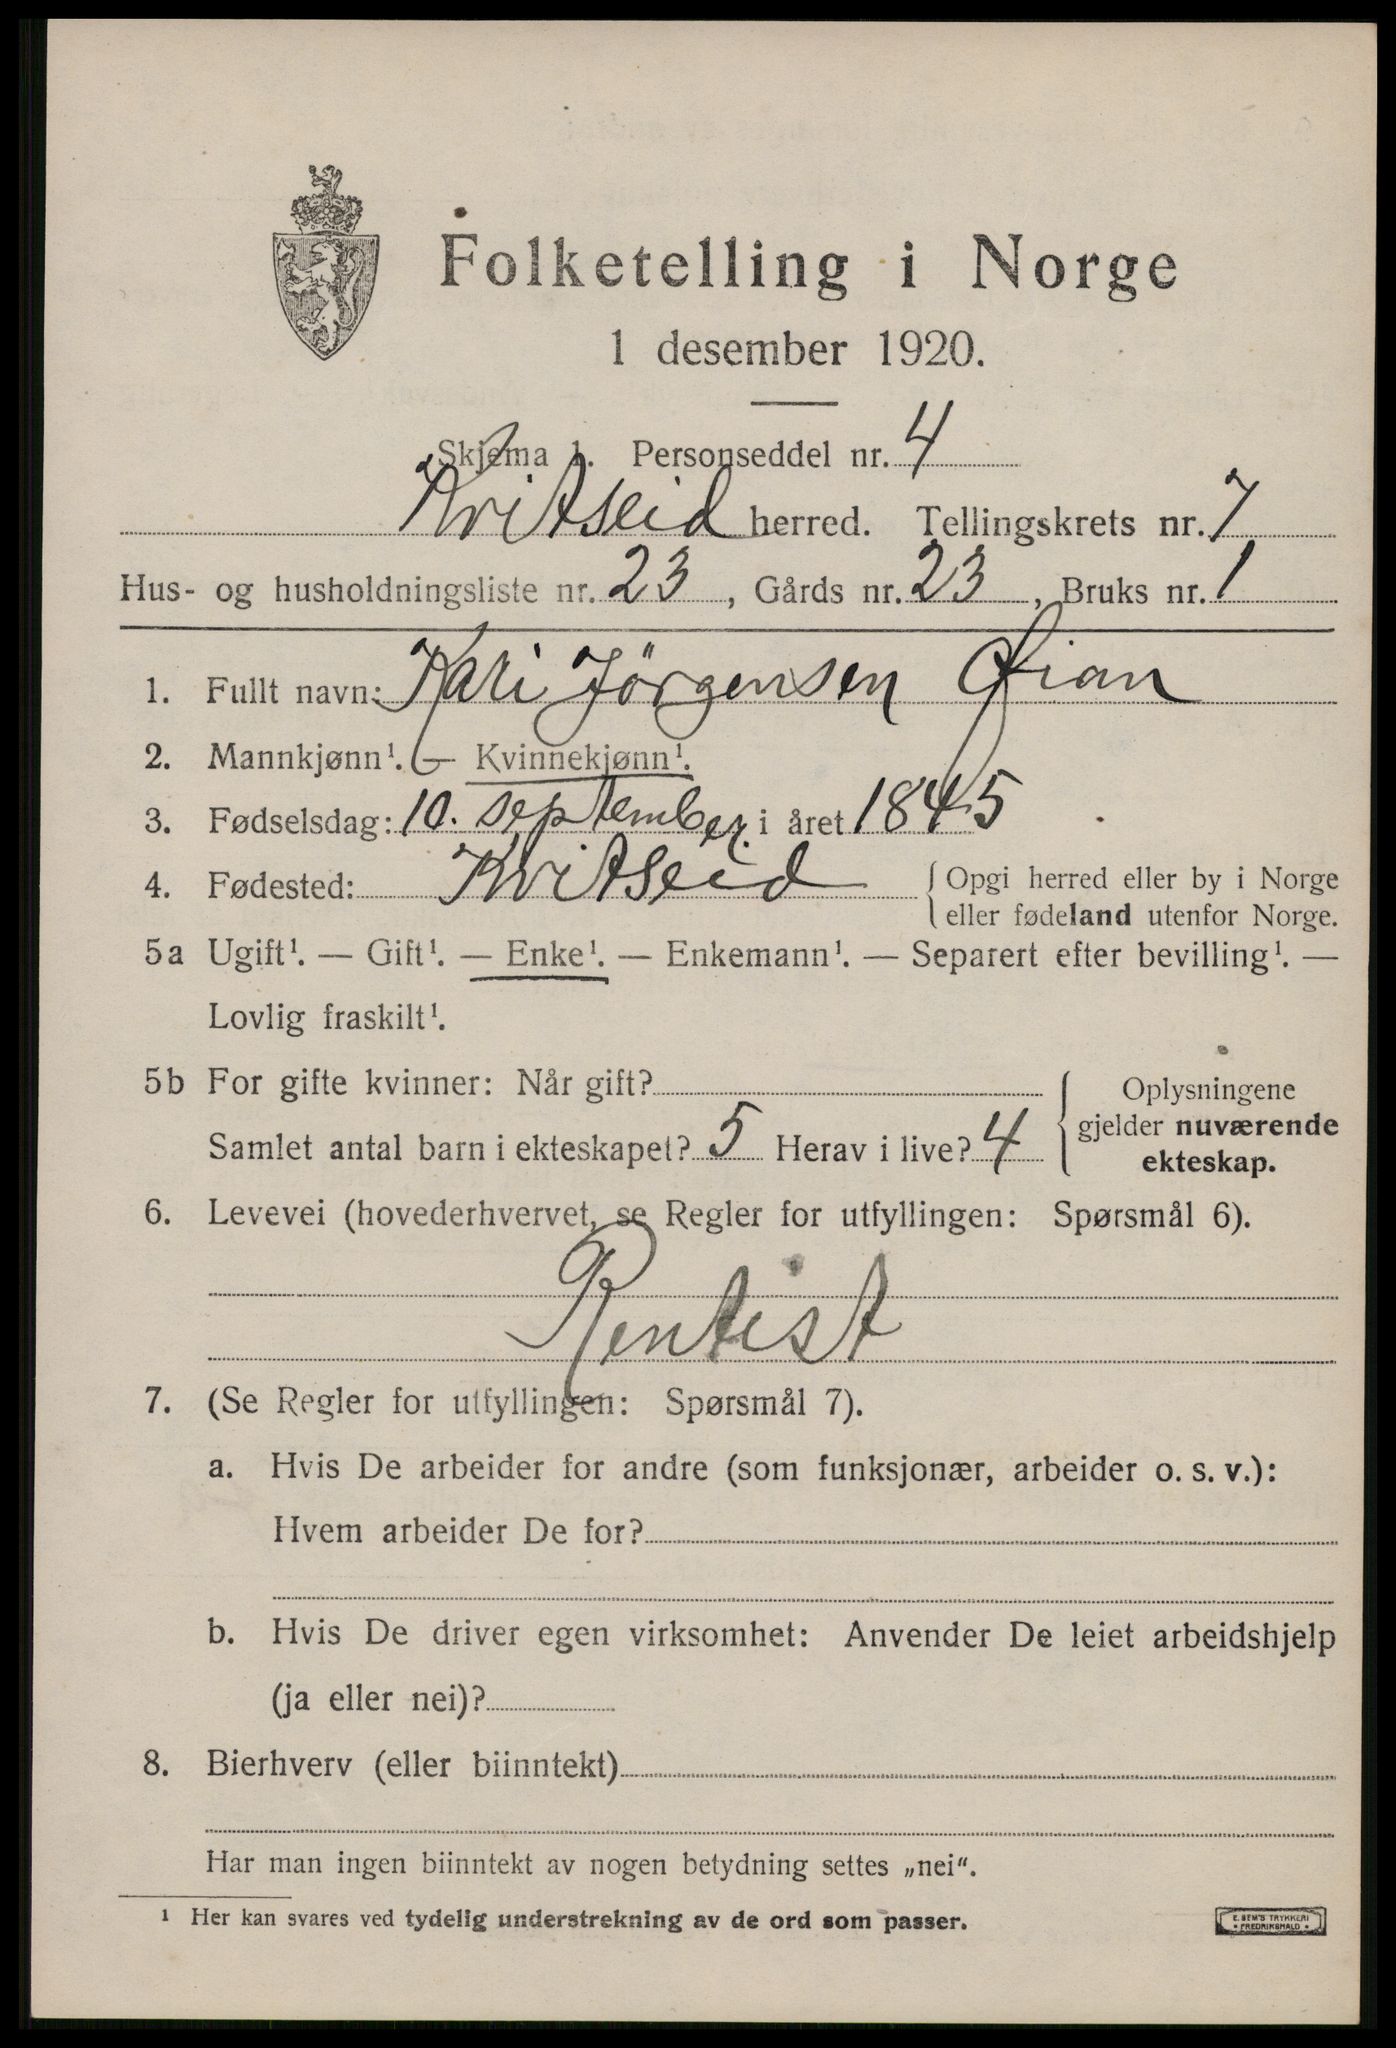 Folketelling i Norge
1 desember 1920.
Skjema 1. Personseddel nr. 4
Kvitseid herred. Tellingskrets nr. 7
Hus- og husholdningsliste nr. 23, Gårds nr. 23, Bruks nr. 1
1. Fullt navn: Kari Jörgensen Øian
2. Mannkjønn¹. — Kvinnekjønn¹.
3. Fødselsdag: 10. september. i året 1845
4. Fødested: Kvitseid
Opgi herred eller by i Norge
eller fødeland utenfor Norge.
5a Ugift¹. — Gift¹. — Enke¹. — Enkemann¹. — Separert efter bevilling¹. —
Lovlig fraskilt¹.
5b For gifte kvinner: Når gift?
Samlet antal barn i ekteskapet? 5 Herav i live? 4
Oplysningene
gjelder nuværende
ekteskap.
6. Levevei (hovederhvervet, se Regler for utfyllingen: Spørsmål 6).
Rentist
7. (Se Regler for utfyllingen: Spørsmål 7).
a. Hvis De arbeider for andre (som funksjonær, arbeider o. s. v.):
Hvem arbeider De for?
b. Hvis De driver egen virksomhet: Anvender De leiet arbeidshjelp
(ja eller nei)?
8. Bierhverv (eller biinntekt)
Har man ingen biinntekt av nogen betydning settes „nei“.
¹ Her kan svares ved tydelig understrekning av de ord som passer.
E. SEM'S TRYKKERI
• FREDRIKSHALD •